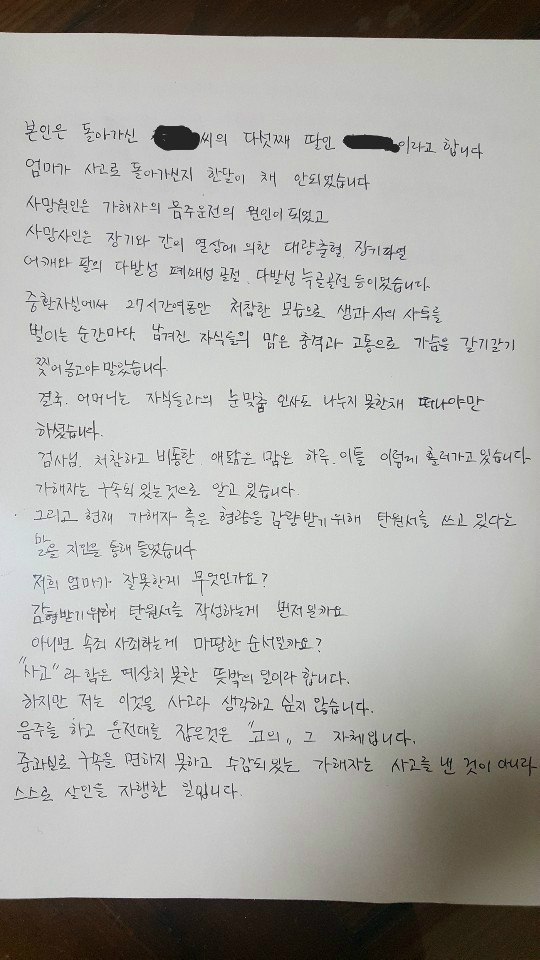 본인은 돌아가신 씨의 다섯째 딸인 이라고 합니다
엄마가 사고로 돌아가신지 한달이 채 안되었습니다
사망원인은 가해자의 음주운전의 원인이 되었고
사망사인은 장기와 간이 열상에 의한 대량출혈 장기파열
어깨와 팔의 다발성 폐쇄성 골절, 다발성 늑골골절 등이었습니다.
중환자실에서 27시간여동안 처참한 모습으로 생과 사의 사투를
벌이는 순간마다, 남겨진 자식들의 맘은 충격과 고통으로 가슴을 갈기갈기
찢어놓고야 말았습니다.
결국, 어머니는 자식들과의 눈맞춤 인사도 나누지 못한채 떠나야만
하셨습니다.
검사님, 처참하고 비통한, 애닮은 맘은 하루, 이틀 이렇게 흘러가고 있습니다
가해자는 구속되 있는것으로 알고 있습니다.
그리고 현재 가해자 측은 형량을 감량받기 위해 탄원서를 쓰고 있다는
말을 지인을 통해 들었습니다
저희 엄마가 잘못한게 무엇인가요?
감형받기위해 탄원서를 작성하는게 먼저일까요
아니면 속죄 사죄하는게 마땅한 순서일까요?
"사고"라 함은 예상치 못한 뜻밖의 일이라 합니다.
하지만 저는 이것을 사고라 생각하고 싶지 않습니다.
음주를 하고 운전대를 잡은것은 "고의" 그 자체입니다.
중과실로 구속을 면하지 못하고 수감되있는 가해자는 사고를 낸 것이 아니라
스스로 살인을 자행한 일입니다.